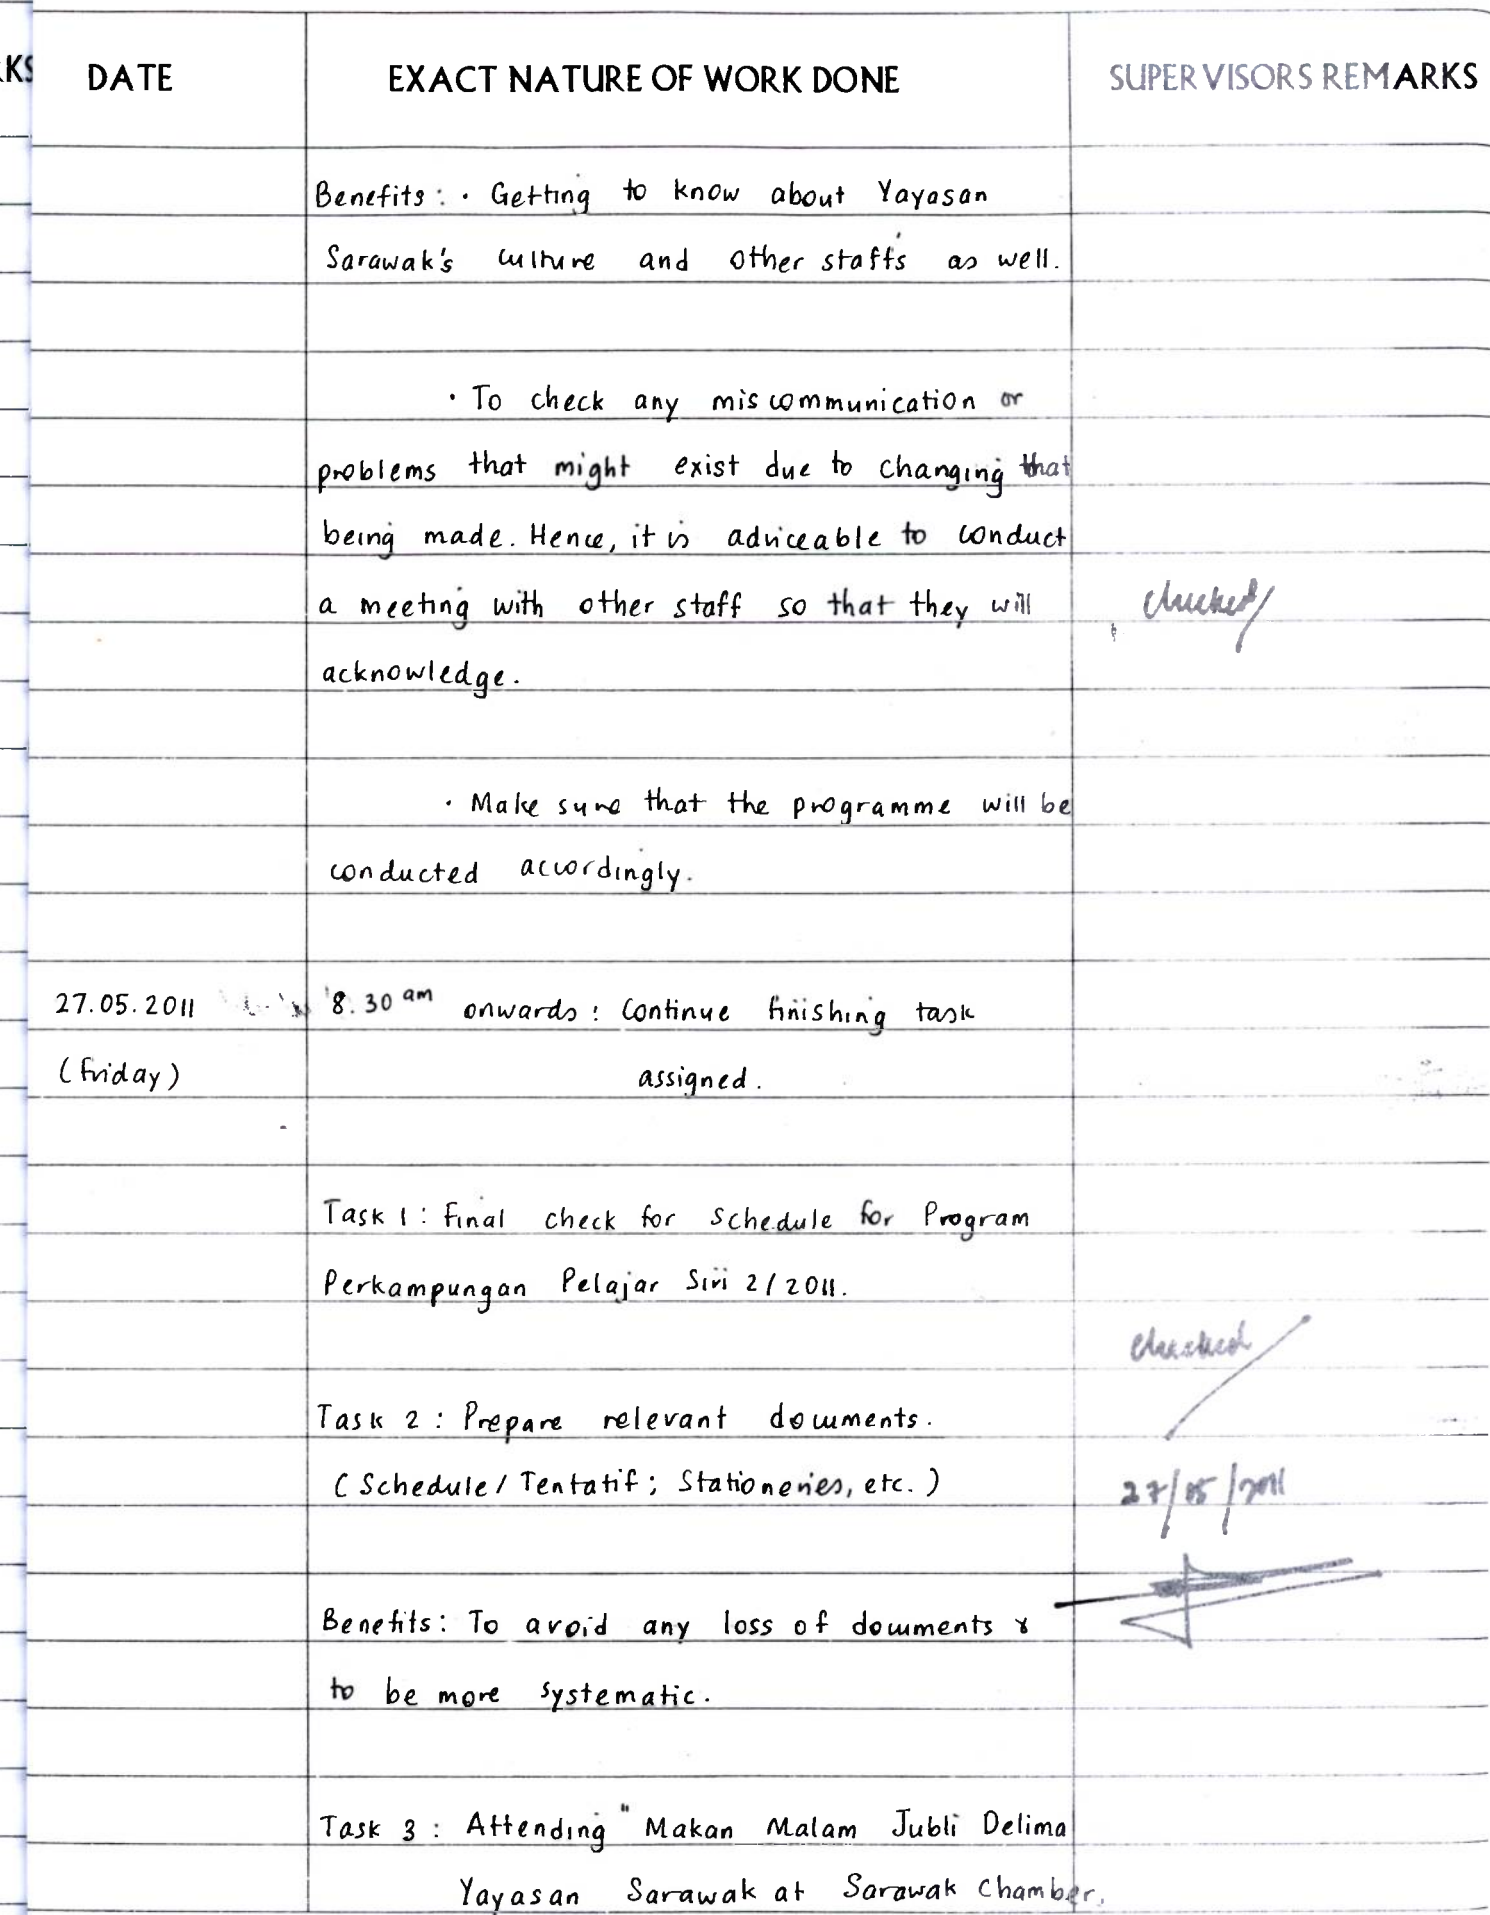 KS DATE EXACT NATURE OF WORK DONE SUPERVISORS REMARKS
Benefits: · Getting to know about Yayasan
Sarawak's culture and other staffs as well.
· To check any miscommunication or
problems that might exist due to changing that
being made. Hence, it is adviceable to conduct
a meeting with other staff so that they will checked
acknowledge.
· Make sure that the programme will be
conducted accordingly.
27.05.2011 8.30 am onwards: Continue finishing task
(Friday) assigned.
Task 1: Final check for schedule for Program
Perkampungan Pelajar Siri 2/2011.
checked
Task 2: Prepare relevant documents.
(Schedule/Tentatif; Stationeries, etc.) 27/05/2011
Benefits: To avoid any loss of documents &
to be more systematic.
Task 3: Attending "Makan Malam Jubli Delima
Yayasan Sarawak at Sarawak Chamber,